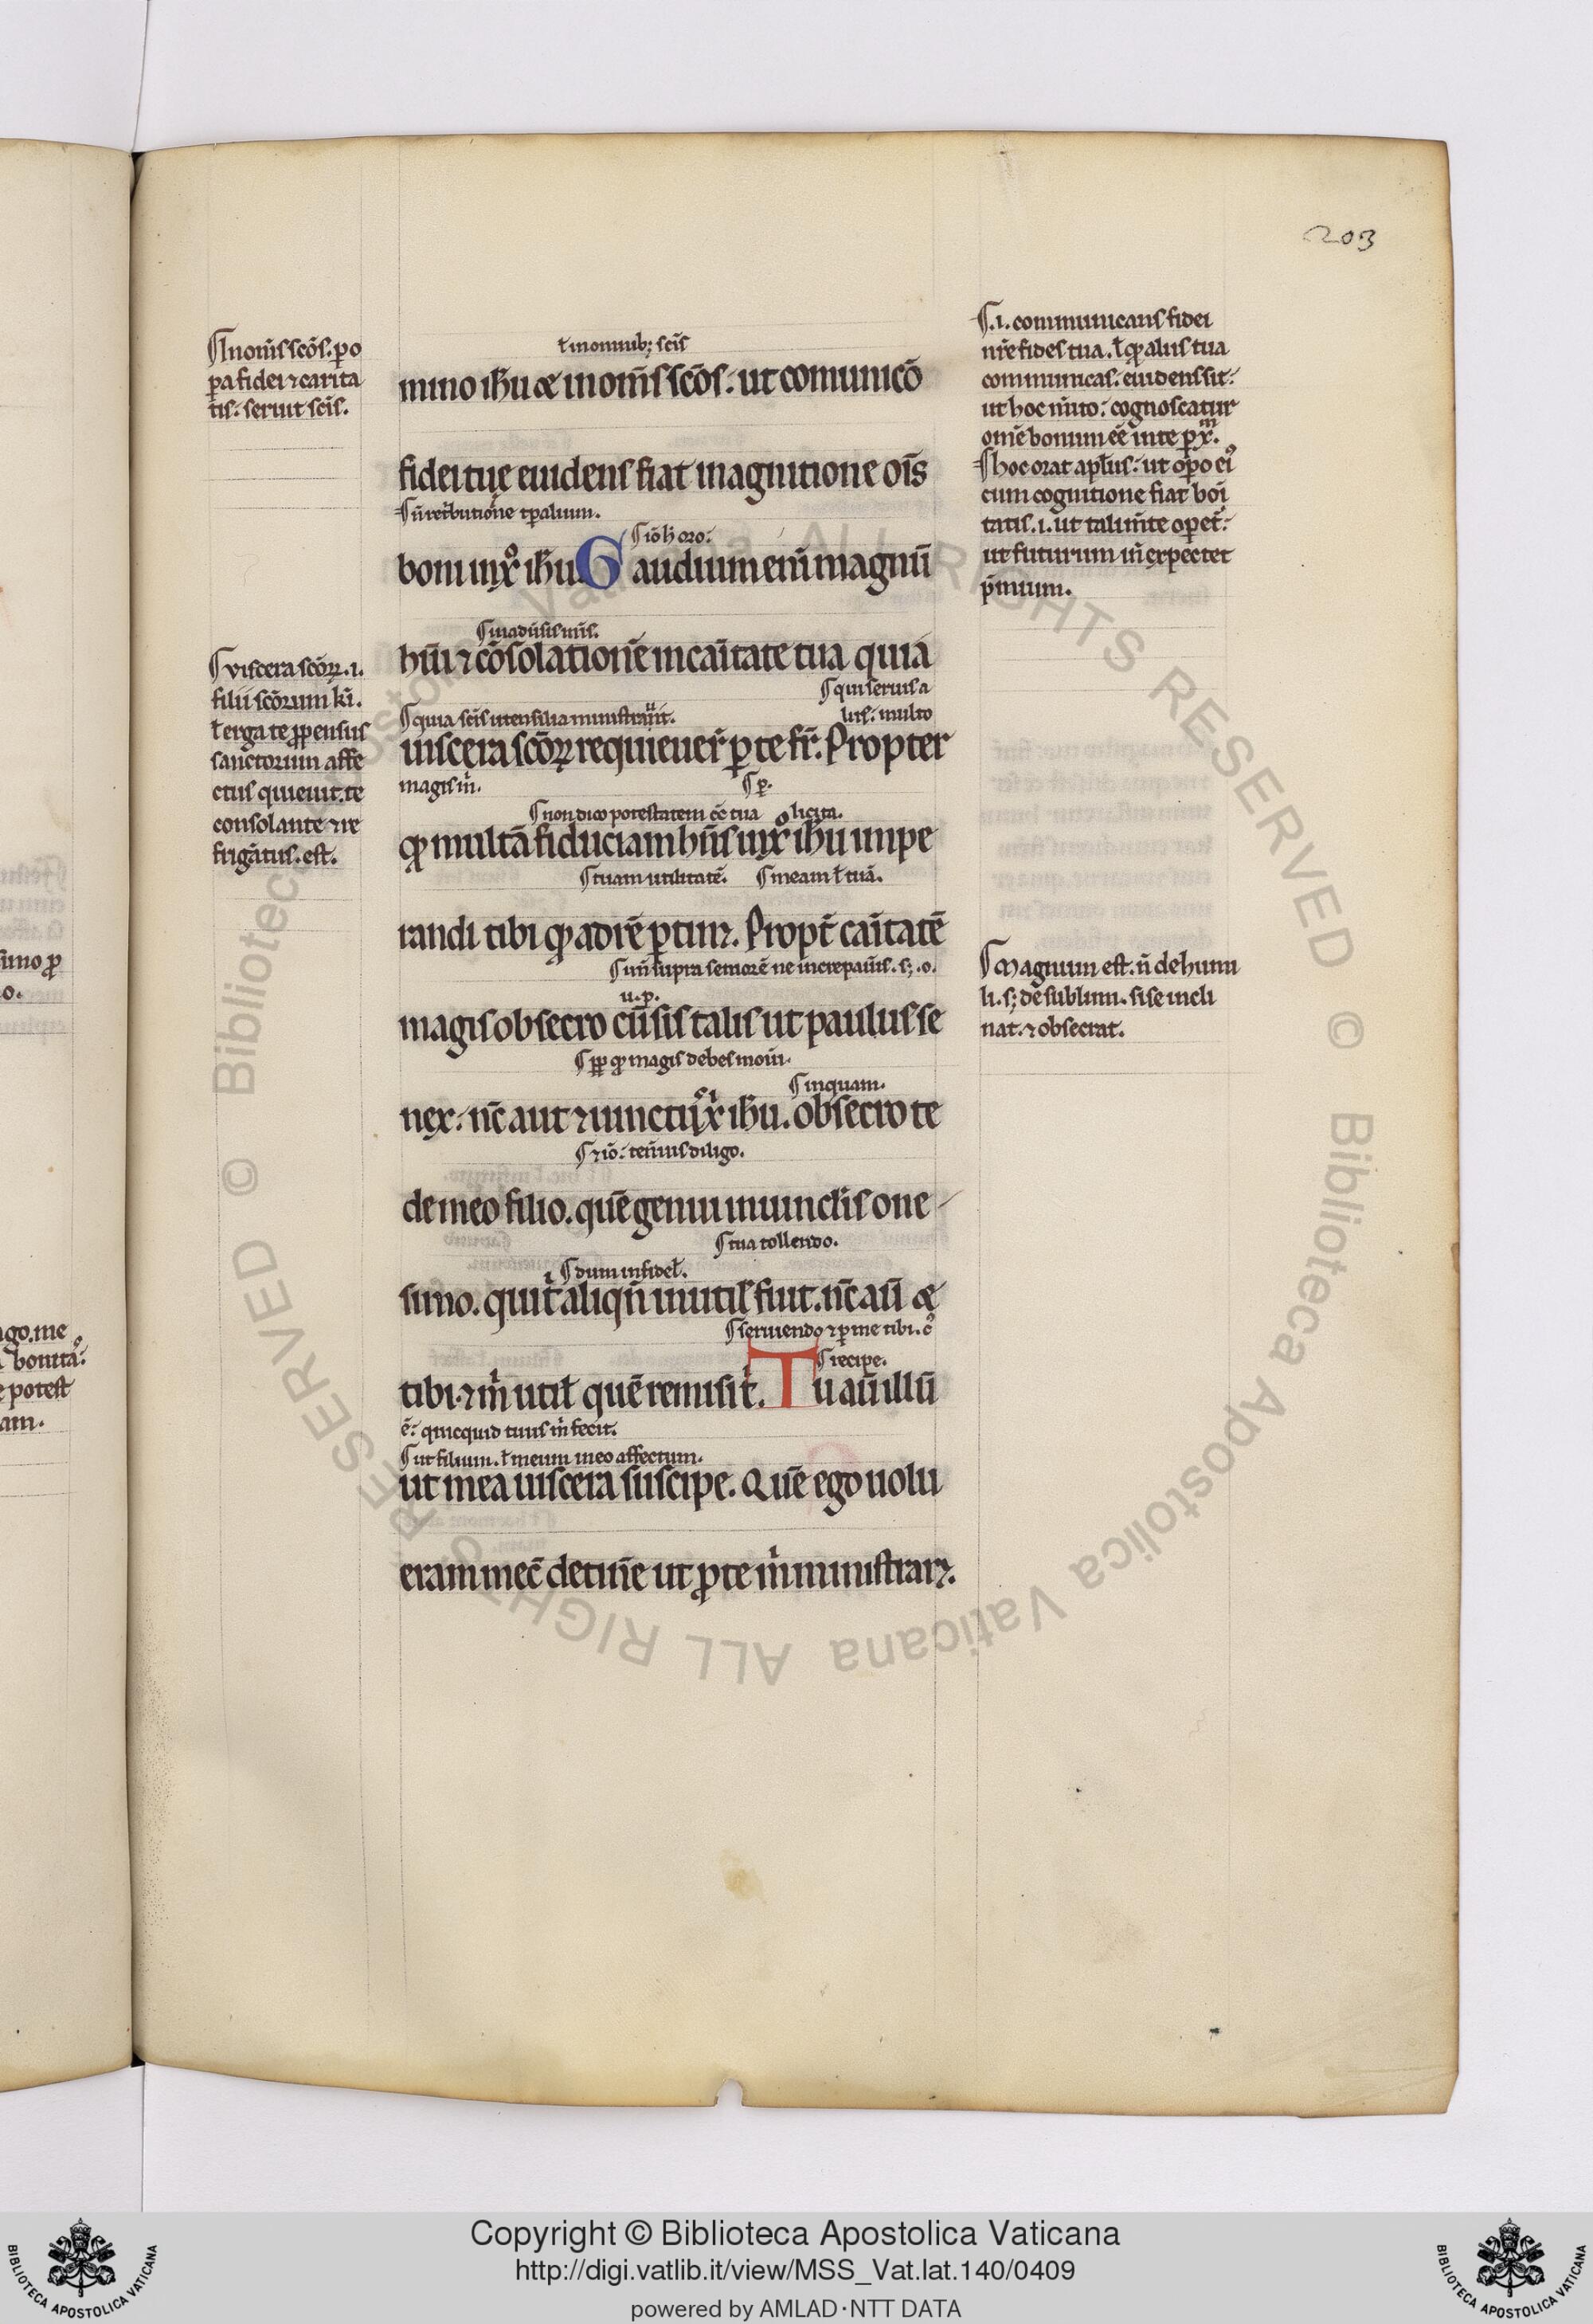 203
ł inomnib; scīs
mino ihu & in om̄s scōs. ut comunicō
fidei tuę euidens fiat in agnitione oīs
¶ ī retributione tp̄alium.
¶ iō h̄ oro.
boni in xp̄o ihu. Gaudium enī magnū
hūi ⁊ cōsolationē in caritate tua quia
¶ qui seruis a
liis. multo
¶ quia scīs utensilia ministrauit.
uiscera scōꝝ requieuer̄ ꝑ te fr̄. Propter
magis m̄.
¶ non dico potestatem eē tua
licita.
qđ multā fiduciam hn̄s in xp̄o ihu impe
¶ tuam utilitatē. ¶ meam ł tuā.
randi tibi qđ ad rē ꝑtinꝫ. Propt̄ caritatē
¶ un̄ supra seniorē ne increpaūis. s; .o.
u. p.
magis obsecro cū sis talis ut paulus se
¶ ꝓp̄ qđ magis debes moūi.
¶ inquam.
nex. nc̄ aut ⁊ uinctus xp̄i ihu. obsecro te
¶ ⁊ iō. teneruis diligo.
de meo filio. quē genui in uinclis one
¶ tua tollendo.
¶ dum infidel̄.
simo. qui t̄ aliqn̄ inutil̄ fuit. nc̄ aū &
¶ seruiendo ⁊ ꝑ me tibi. c̄
¶ recipe.
tibi. ⁊ m̄ util̄ quē remisi t̄. Tu aū illū
ē. quicquid tuus m̄ fecit.
¶ ut filium. ł meum meo affectum.
ut mea uiscera suscipe. Quē ego uolu
eram mec̄ detinē ut ꝓ te m̄ ministrarꝫ.
¶ In om̄s scōs. ꝓ o
ꝑa fidei ⁊ carita
tis. seruit scīs.
¶ viscera scōꝝ .i.
filii scōrum
ł erga te ꝓpensus
sanctorum affe
ctus quieuit. te
consolante ⁊ re
friḡatus. est.
¶ .i. communicans fidei
nr̄e fides tua. ł qđ aliis tua
communicas. euidens sit.
ut hoc cognoscatur
omē bonum eē in te ꝑ xp̄m.
¶ hoc orat apłus. ut oꝑo ei⁹
cum cognitione fiat boī
tatis .i. ut tali m̄te oꝑet̄.
ut futurum in̄ expectet
p̄mium.
¶ Magnum est. n̄ de humi
li. s; de sublim. si se incli
nat. ⁊ obsecrat.
Copyright © Biblioteca Apostolica Vaticana
http://digi.vatlib.it/view/MSS_Vat.lat.140/0409
powered by AMLAD·NTT DATA
BIBLIOTECA APOSTOLICA VATICANA
BIBLIOTECA APOSTOLICA VATICANA
© Biblioteca Apostolica Vaticana ALL RIGHTS RESERVED © Biblioteca Apostolica Vaticana ALL RIGHTS RESERVED